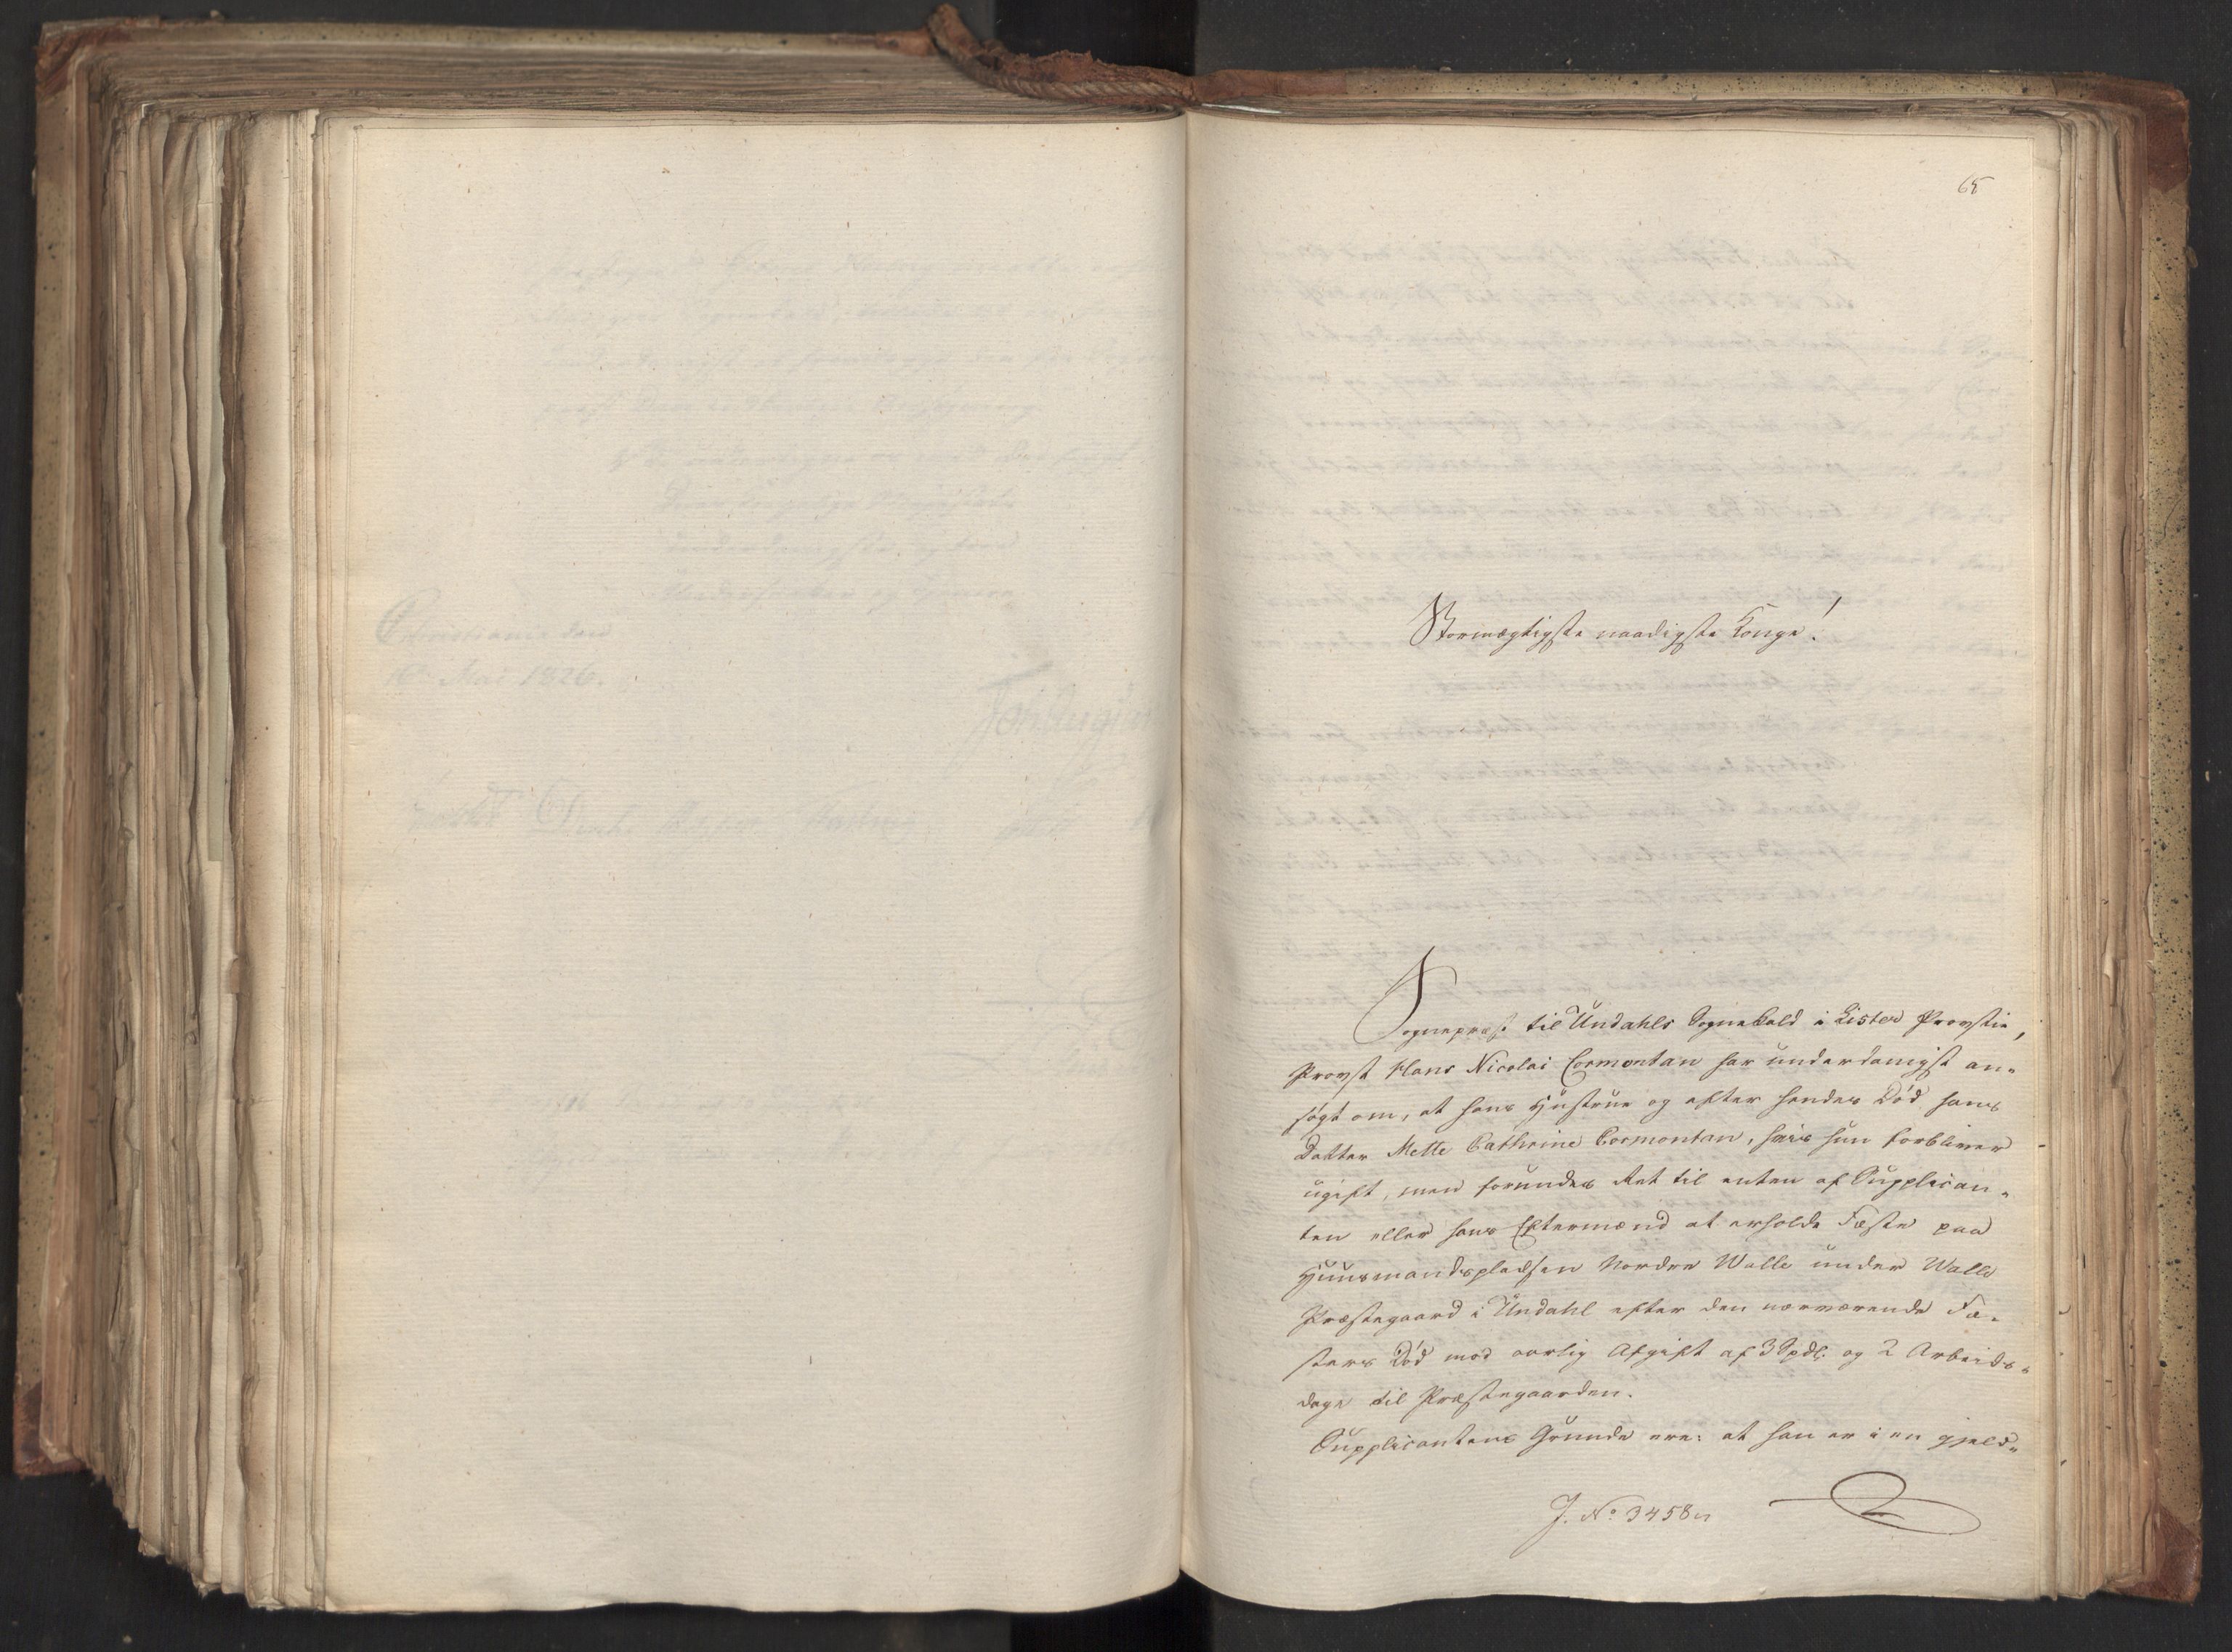 65
Stormægtigste naadigste Konge!
Sognepræst til Undahls Sognekald i Lister Provstie,
Provst Hans Nicolai Cormontan har underdanigst an-
søgt om, at hans Hustrue og efter hendes Død hans
Datter Mette Cathrine Cormontan, hvis hun forbliver
ugift, maa forundes Ret til enten af Supplican-
ten eller hans Eftermænd at erholde Fæste paa
Huusmandspladsen Nordre Walle under Walle
Præstegaard i Undahl efter den nærværende Fæ-
sters Død mod aarlig Afgift af 3 Spdlr. og 2 Arbeids-
dage til Præstegaarden.
Supplicantens Grunde ere: at han er i en gjeld-
J. No 3458